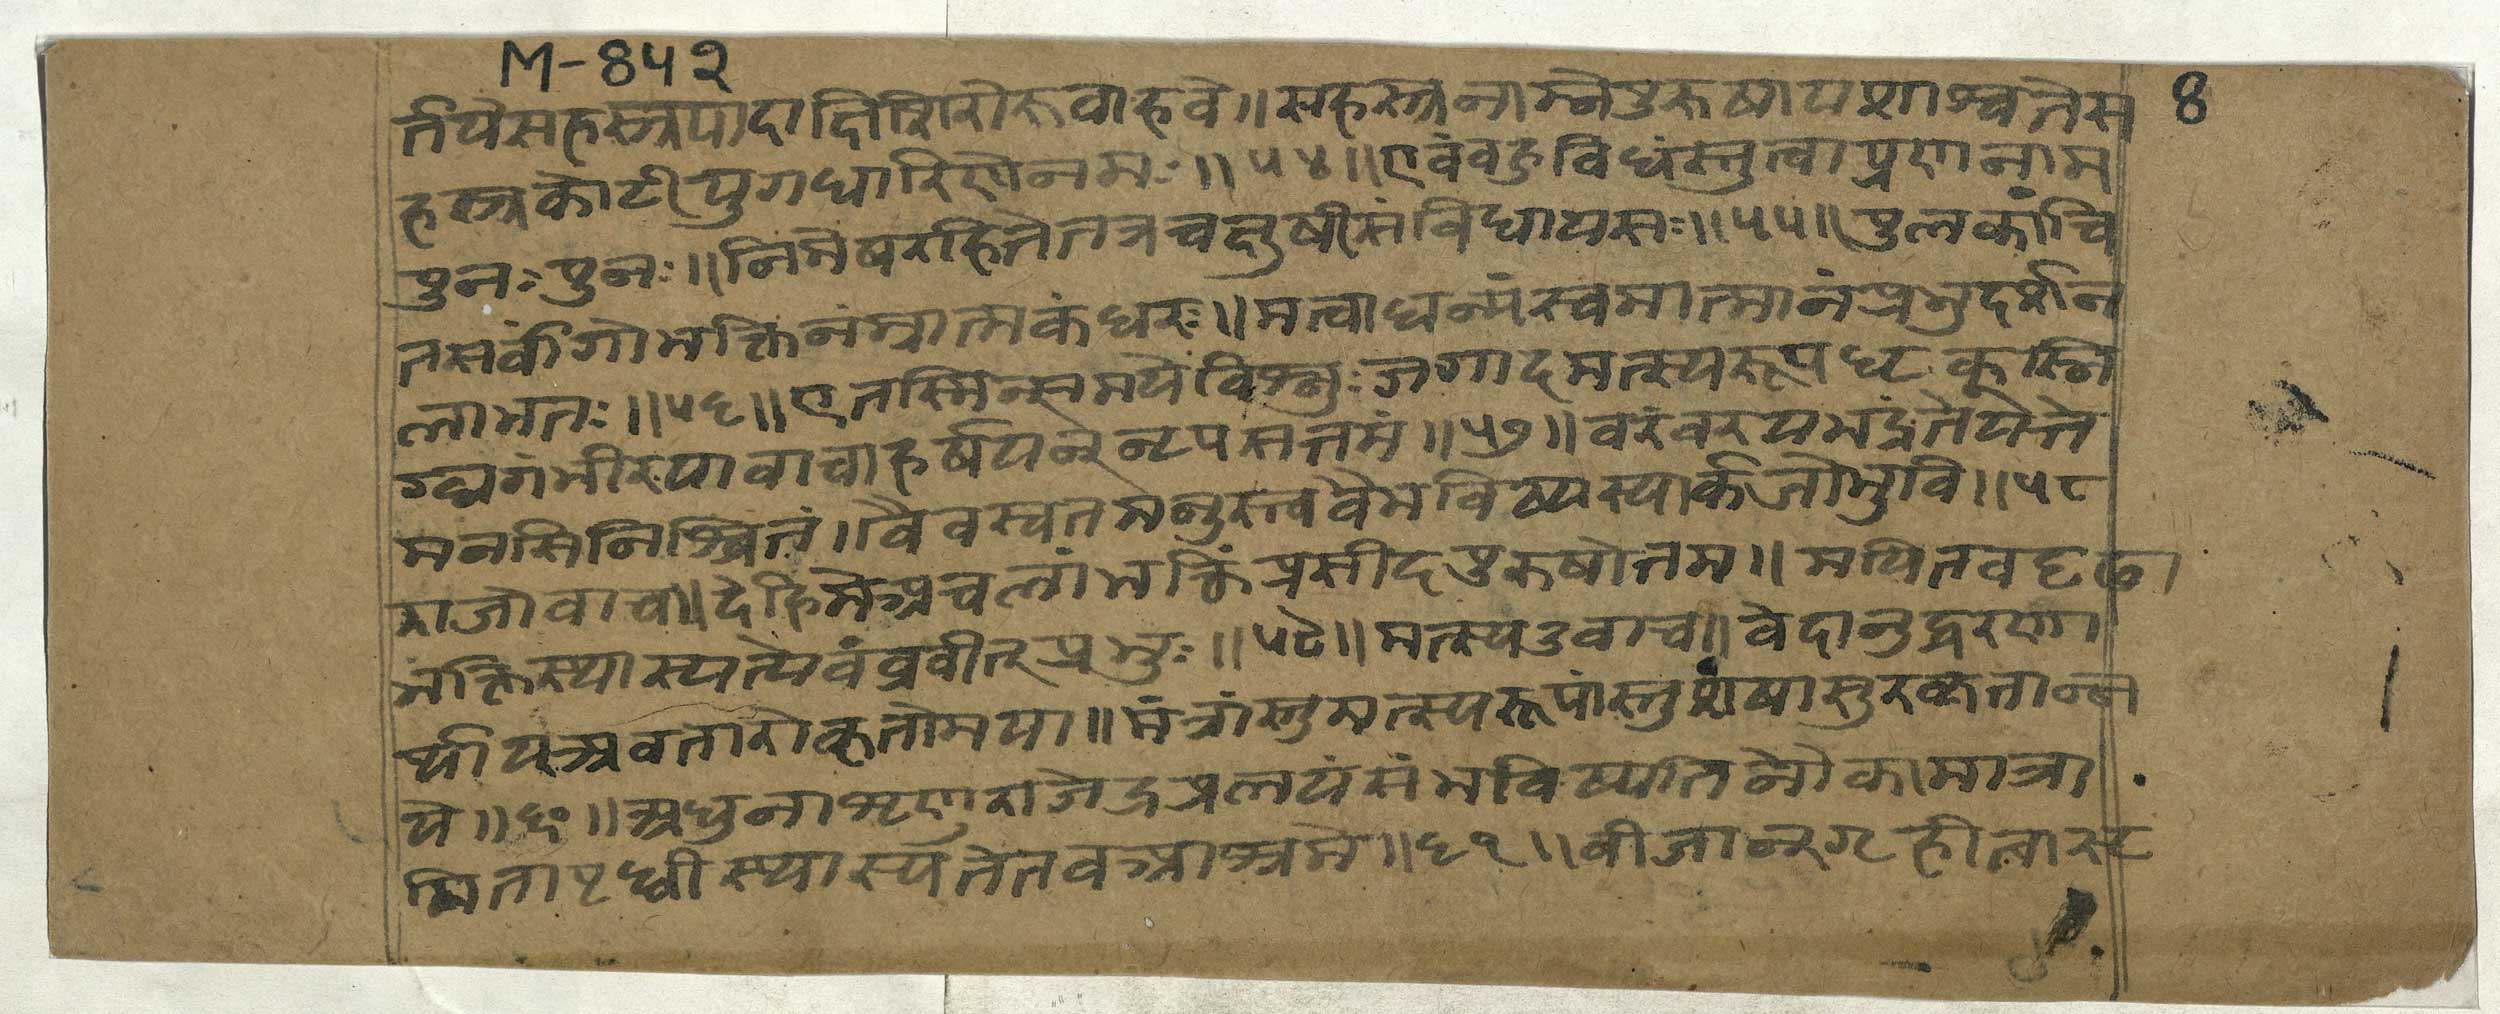 M-8५२
र्तयेसहस्रपादाक्षिशिरोरुवाहवे॥सहस्रनाम्नेपुरुषायशाश्वतेस 8
हस्रकोटीयुगधारिणेनमः॥५४॥एवंवहुविधंस्तुत्वाप्रणनाम
पुनःपुनः॥निमेषरहितेतत्रचक्षुषीसंविधायसः॥५५॥पुलकांचि
तसर्वांगोभक्तिनंम्रात्मकंधरः॥मत्वाधन्यंस्वमात्मानंप्रभुदर्शन
लाभतः॥५६॥एतस्मिन्समयेविष्नुःजगादमत्स्यरूपधृक्स्नि
ग्धगंभीरयावाचाहर्षयन्नृपसत्तमं॥५७॥वरंवरयभद्रंतेयत्ते
मनसिनिश्चितं॥वैवस्वतमनुस्त्ववैभविष्यस्यार्कजोभुवि॥५८
राजोवाच॥देहिमेअचलांभक्तिंप्रसीदपुरुषोत्तम॥मयितवदृढा
भक्तिस्थास्यत्येवंव्रवीत्प्रभुः॥५९॥मत्स्यउवाच॥वेदानुद्धरणा
र्थायअवतारोकृतोमया॥मंत्रांस्तुमत्स्यरूपांस्तुशंषासुरकृतान्न
ये॥६०॥अधुनाशृणुराजेद्रप्रलयंसंभविष्यतिनौकामात्रा
स्थितापृथ्वीस्थास्यतेतवआश्रमे॥६१॥वीजान्गृहीत्वासृ